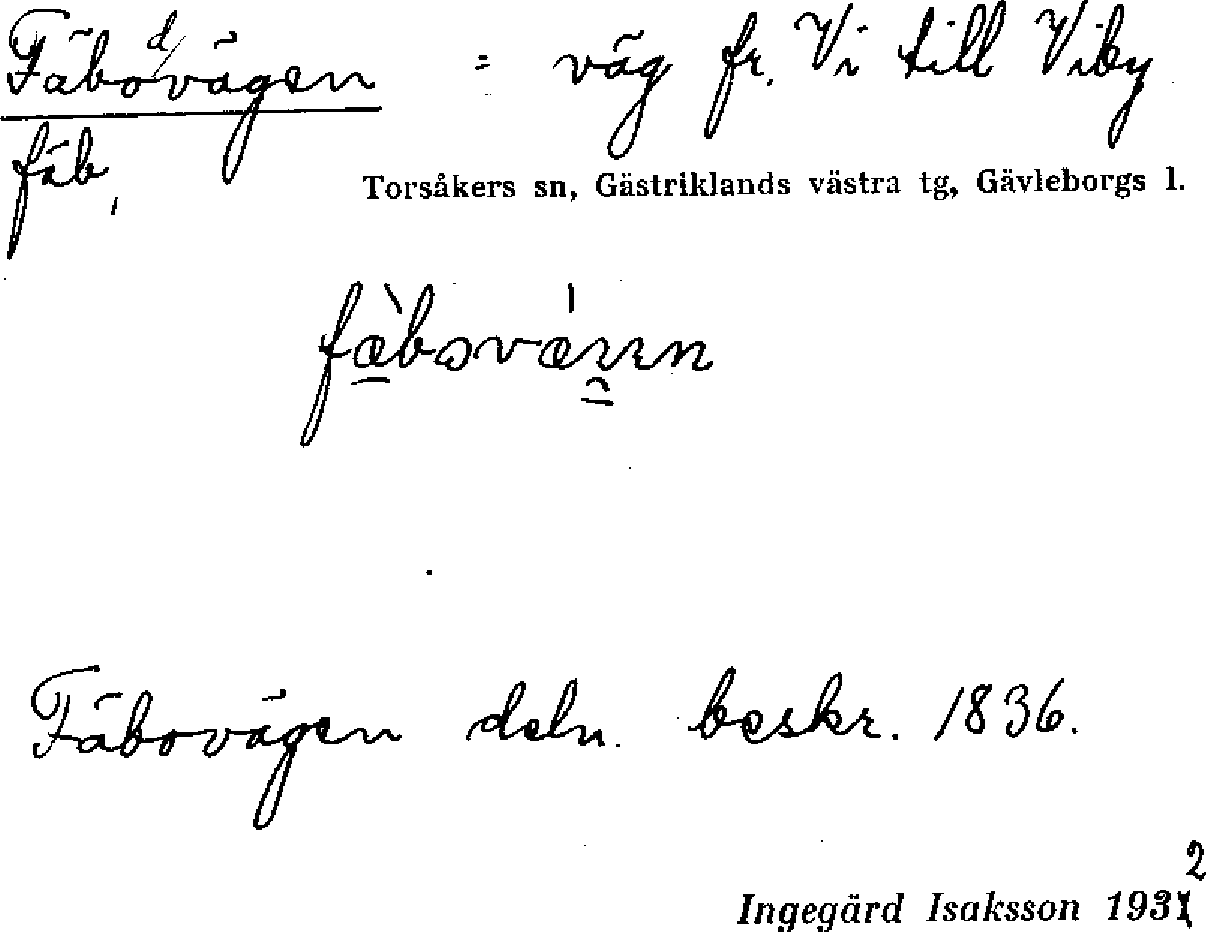 Fäbodvägen = väg fr. Vi till Viby
fäb,
Torsåkers sn, Gästriklands västra tg, Gävleborgs l.
Fäbovägen deln. beskr. 1836.
Ingegärd Isaksson 1932